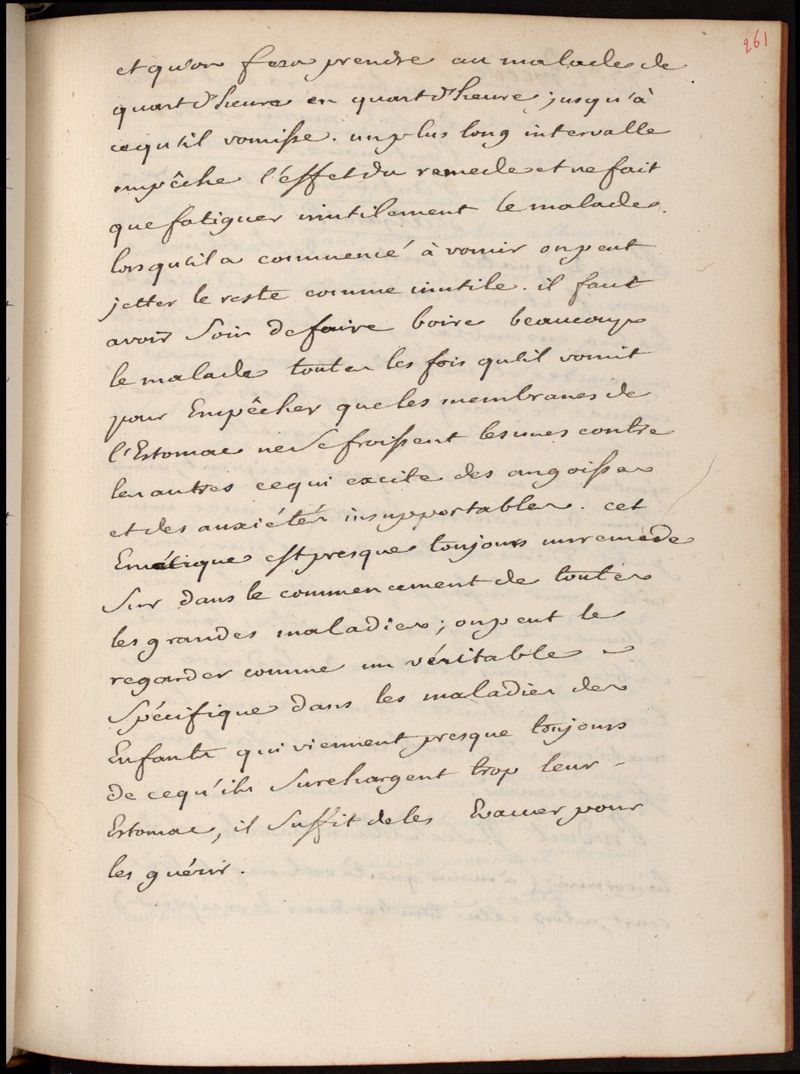 261
et qu'on fera prendre au malade de
quart d'heure en quart d'heure, jusqu'à
cequ'il vomisse. un plus long intervalle
empêche l'effet du remede et ne fait
que fatiguer inutilement le malade.
lorsqu'il a commencé à vomir on peut
jetter le reste comme inutile. il faut
avoir Soin de faire boire beaucoup
le malade toutes les fois qu'il vomit
pour Empêcher que les membranes de
l'Estomac ne Se froissent les unes contre
les autres ce qui excite des angoisses
et des anxiétés insupportables. cet
Emétique est presque toujours un remède
Sur dans le commencement de toutes
les grandes maladies; on peut le
regarder comme un véritable ~
Spécifique dans les maladies des
Enfants qui viennent presque toujours
de cequ'ils Surchargent trop leur -
Estomac, il Suffit de les Evacuer pour
les guérir.